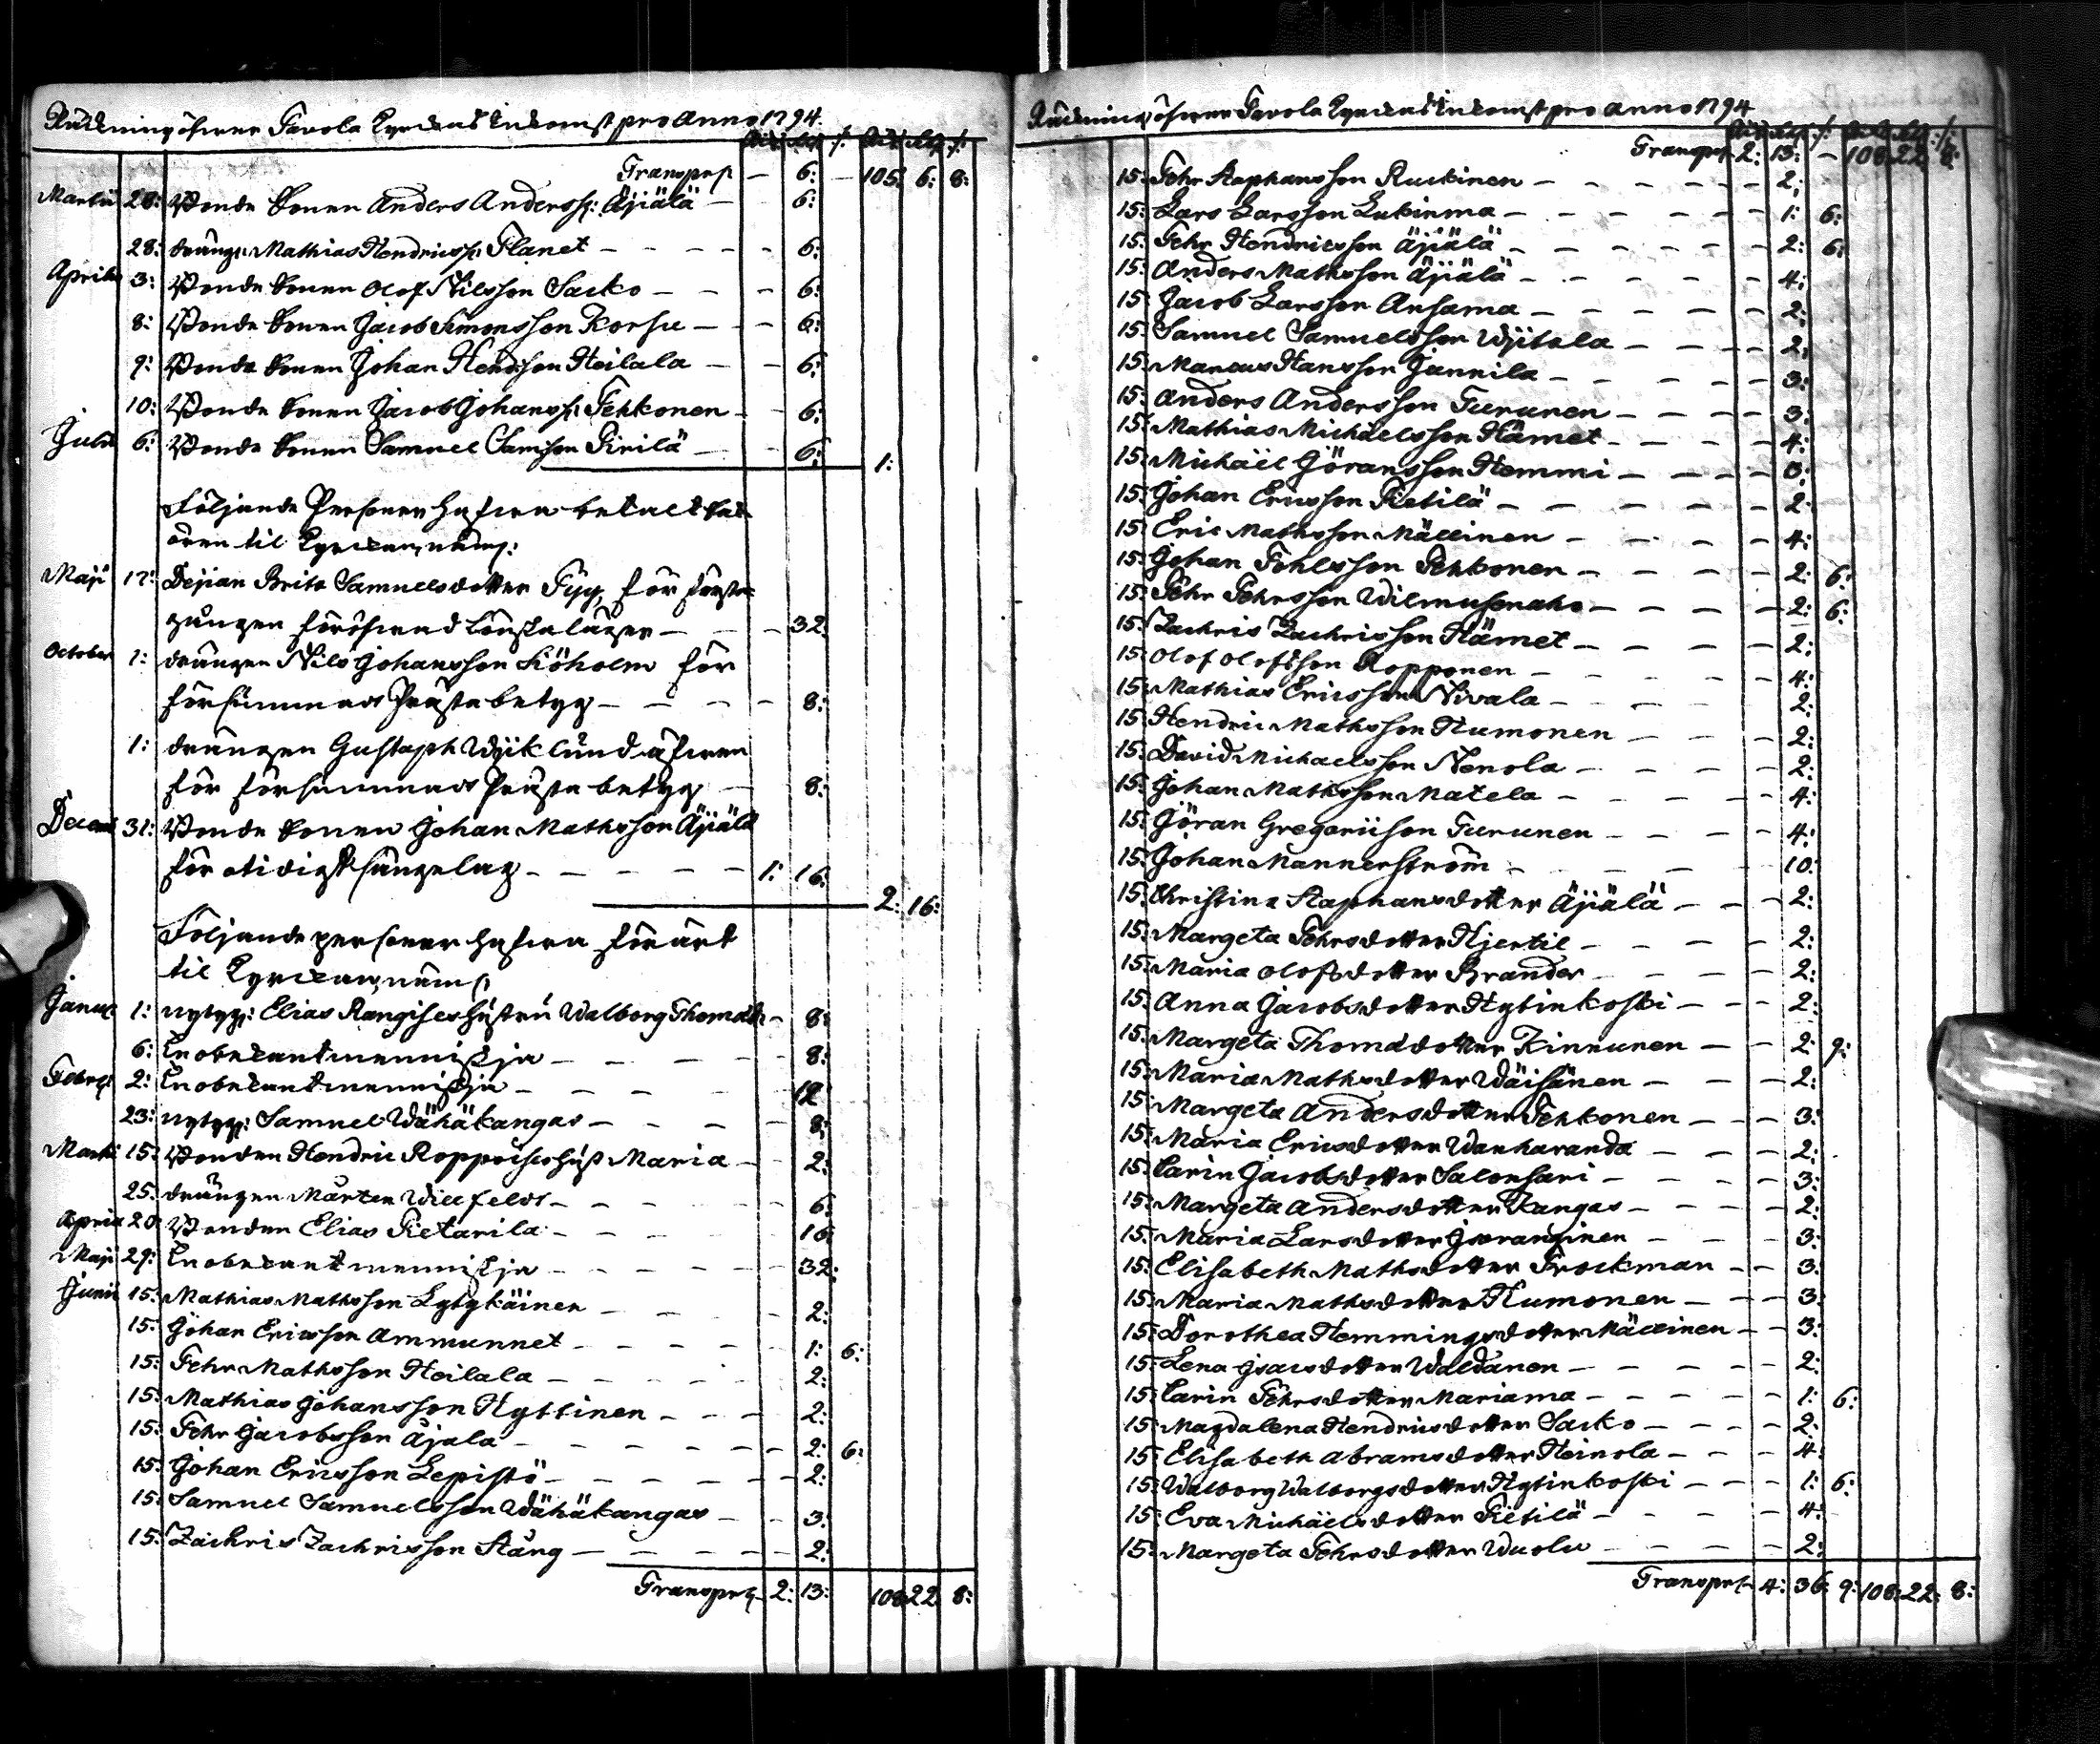 Räkning öfwer Pavola Kyrckas Inkomst pro Anno 1794.
Rd: sk: /: Rd: sk: /:
Transpt — 6: — 105: 6: 8:
Martii 28: Bonde Sonen Anders Anderss: Äjiälä — 6:
28: dräng: Mathias Hendricss: Planet — 6:
Aprilis 3: Bonde Sonen Olof Nilsson Sarko — 6:
8: Bonde Sonen Jacob Simonsson Korhu — 6:
9: Bonde Sonen Johan Hendsson Heilala — 6:
10: Bonde Sonen Jacob Johanss: Pehkonen — 6:
Julii 6: Bonde Sonen Samuel Samsson Pirilä — 6: 1:
Följande Personer hafwa betalt sak-
ören til Kyrckan, näml:
Maji 17: Pejian Brita Samuelsdotter Fyg, för första
gången föröfwad Lönskaläger — 32.
October 1: drängen Nils Johansson Siöholm för
försummad Prästabetyg — 8:
1: drängen Gustaph Wijklund äfwen
för försummad Prästabetyg — 8:
Decemb 31: Bonde Sonen Johan Mathsson Äjiälä
för otidigt sängelag — 1: 16: 2: 16:
Följande personer hafwa förärt
til Kyrckan, näml:
Januar 1: nybyg: Elias Rangises hustru Walborg Thomædr — 8:
6: En obekant menniskja — 8:
Febru: 2: En obekant menniskja — 12
23: nybyg: Samuel Wähäkangas — 8:
Martii 15: Bonden Hendric Roppoises hust Maria — 2:
25: drängen Mårten Willfeldt — 6:
Aprill 20: Bonden Elias Pietarila — 16
Maji 29: En obekant menniskja — 32:
Junii 15: Mathias Mathsson Lytykäinen — 2:
15: Johan Ericsson Ammunnet — 1: 6:
15: Pehr Mathsson Heilala — 2:
15: Mathias Johansson Hyttinen — 2:
15: Pehr Jacobsson Äjälä — 2: 6:
15: Johan Ericsson Lepistö — 2:
15: Samuel Samuelsson Wähäkangas — 3:
15: Zachris Zachrisson Stång — 2:
Transpt 2: 13: 108: 22: 8:
Räkning öfwer Pavola Kyrckas Inkomst pro Anno 1794
Rd: sk: /: Rd: sk: /:
Transpt 2: 13: — 108: 22: 8:
15: Pehr Staphansson Ruckinen — 2:
15: Lars Larsson Lukinma — 1: 6:
15: Pehr Hendricsson Äjiälä — 2: 6:
15: Anders Mathsson Äjiälä — 4:
15: Jacob Larsson Ansama — 2:
15: Samuel Samuelsson Wijtala — 2:
15: Marcus Hansson Junnila — 3:
15: Anders Andersson Turunen — 3:
15: Mathias Michaelsson Hämet — 4:
15: Michäël Göransson Hemmi — 8:
15: Johan Ericsson Pietilä — 2:
15: Eric Mathsson Mällinen — 4:
15: Johan Pohlsson Pehkonen — 2: 6:
15: Pehr Pehrsson Wilmusenaho — 2: 6:
15: Zachris Zachrisson Hämet — 2:
15: Olof Olofsson Ropponen — 4:
15: Mathias Ericsson Nivala — 2:
15: Hendric Mathsson Humonen — 2:
15: David Michaelsson Nenola — 2:
15: Johan Mathsson Matela — 4:
15: Göran Gregoriison Turunen — 4:
15: Johan Mannerström — 10:
15: Christina Staphansdotter Äjiälä — 2:
15: Margeta Pehrsdotter Kjertil — 2:
15: Maria Olofsdotter Brander — 2:
15: Anna Jacobsdotter Hytinkoski — 2:
15: Margeta Thomædotter Kinnunen — 2: 9:
15: Maria Mathsdotter Wäisänen — 2:
15: Margeta Andersdotter Pehkonen — 3:
15: Maria Ericsdotter Wanharanda — 2:
15: Carin Jacobsdotter Salonsari — 3:
15: Margeta Andersdotter Kangas — 2:
15: Maria Larsdotter Karanginen — 3:
15: Elisabeth Mathsdotter Brockman — 3:
15: Maria Mathsdotter Humonen — 3:
15: Dorothea Hemmingsdotter Mällinen — 3:
15: Lena Isacsdotter Waldanen — 2:
15: Carin Pehrsdotter Mariama — 1: 6:
15: Magdalena Hendricsdotter Sarko — 2:
15: Elisabeth Abramsdotter Heinola — 4:
15: Walborg Walborgsdotter Hytinkoski — 1: 6:
15: Eva Michäelsdotter Pietilä — 4:
15: Margeta Pehrsdotter Wuolu — 2:
Transpt 4: 36: 9: 108: 22: 8: